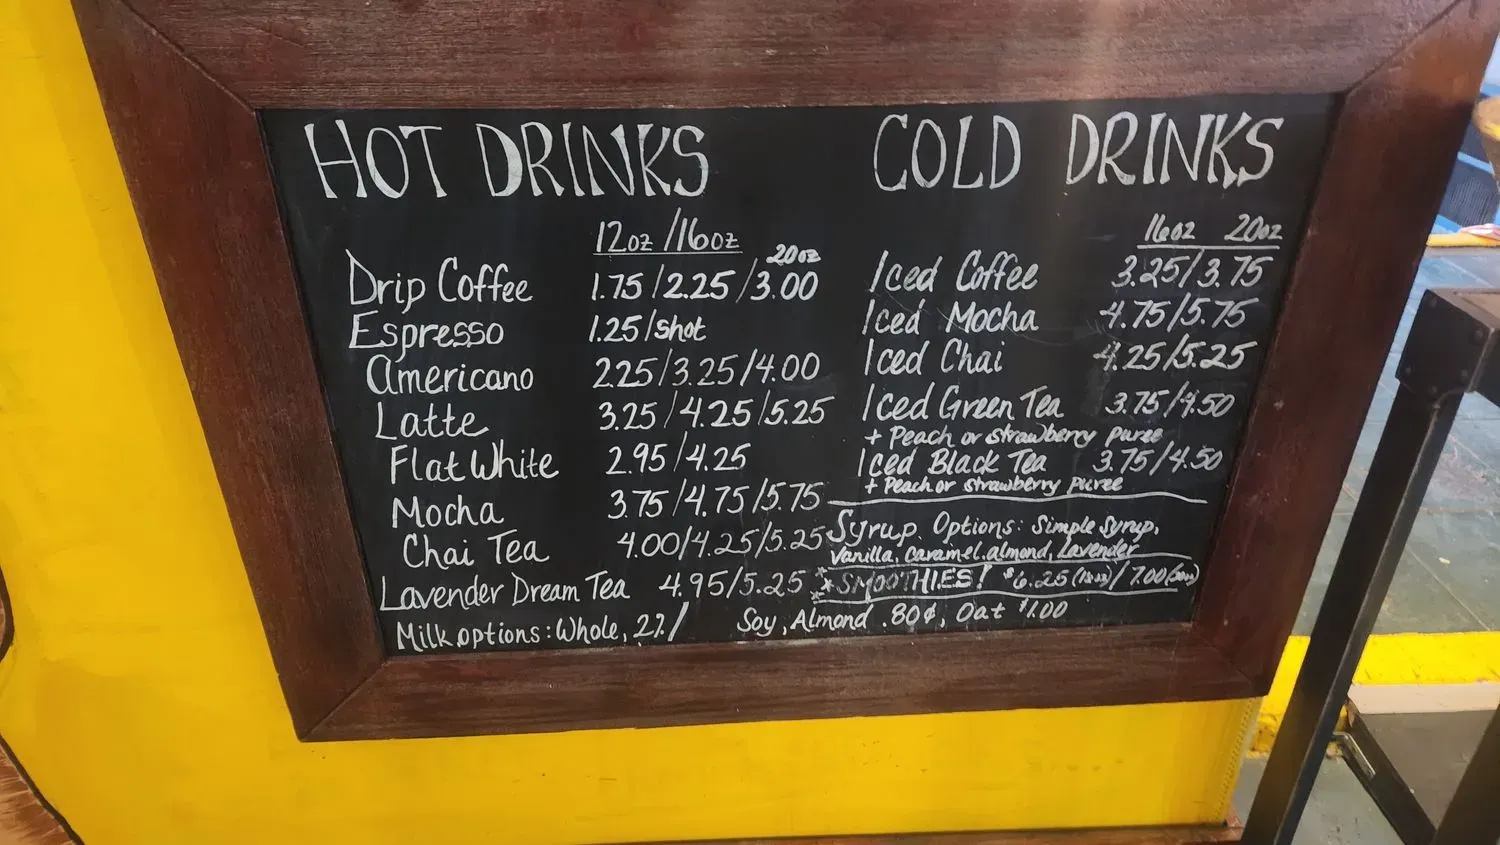 HOT DRINKS
12oz /16oz
20oz
Drip Coffee 1.75/2.25/3.00
Espresso 1.25/shot
Americano 2.25/3.25/4.00
Latte 3.25/4.25/5.25
Flat White 2.95/4.25
Mocha 3.75/4.75/5.75
Chai Tea 4.00/4.25/5.25
Lavender Dream Tea 4.95/5.25
Milk options: Whole, 2%/ Soy, Almond .80¢, Oat $1.00
COLD DRINKS
16oz 20oz
Iced Coffee 3.25/3.75
Iced Mocha 4.75/5.75
Iced Chai 4.25/5.25
Iced Green Tea 3.75/4.50
+ Peach or strawberry puree
Iced Black Tea 3.75/4.50
+ Peach or strawberry puree
Syrup Options: Simple syrup,
vanilla, caramel, almond, Lavender
SMOOTHIES! $6.25 / 7.00